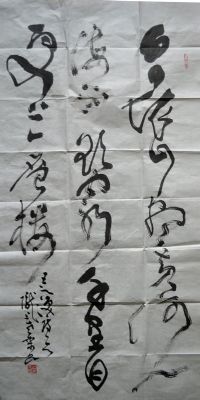 白日依山尽黄河入
海流欲穷千里目
更上一层楼
王之涣诗